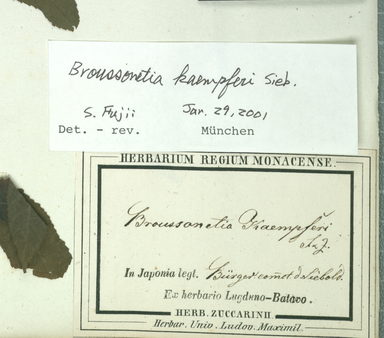 Broussonetia kaempferi Sieb.
S. Fujii Jan. 29, 2001
Det. - rev. München
HERBARIUM REGIUM MONACENSE.
Broussonetia Kaempferi
In Japonia legt. Bürger comet de Siebold.
Ex herbario Lugduno-Batavo.
HERB. ZUCCARINII
Herbar. Univ. Ludov. Maximil.